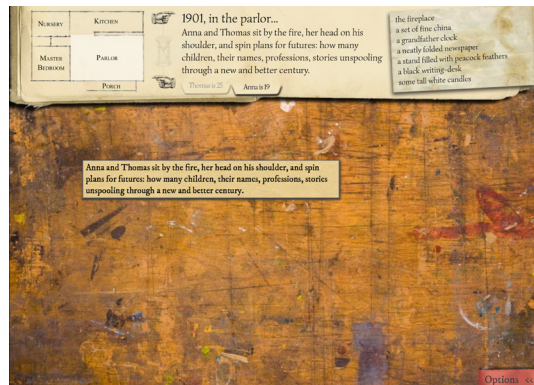 NURSERY
KITCHEN
MASTER
BEDROOM
PARLOR
PORCH
1901, in the parlor...
Anna and Thomas sit by the fire, her head on his
shoulder, and spin plans for futures: how many
children, their names, professions, stories unspooling
through a new and better century.
Thomas is 25
Anna is 19
the fireplace
a set of fine china
a grandfather clock
a neatly folded newspaper
a stand filled with peacock feathers
a black writing-desk
some tall white candles
Anna and Thomas sit by the fire, her head on his shoulder, and spin
plans for futures: how many children, their names, professions, stories
unspooling through a new and better century.
Options <<